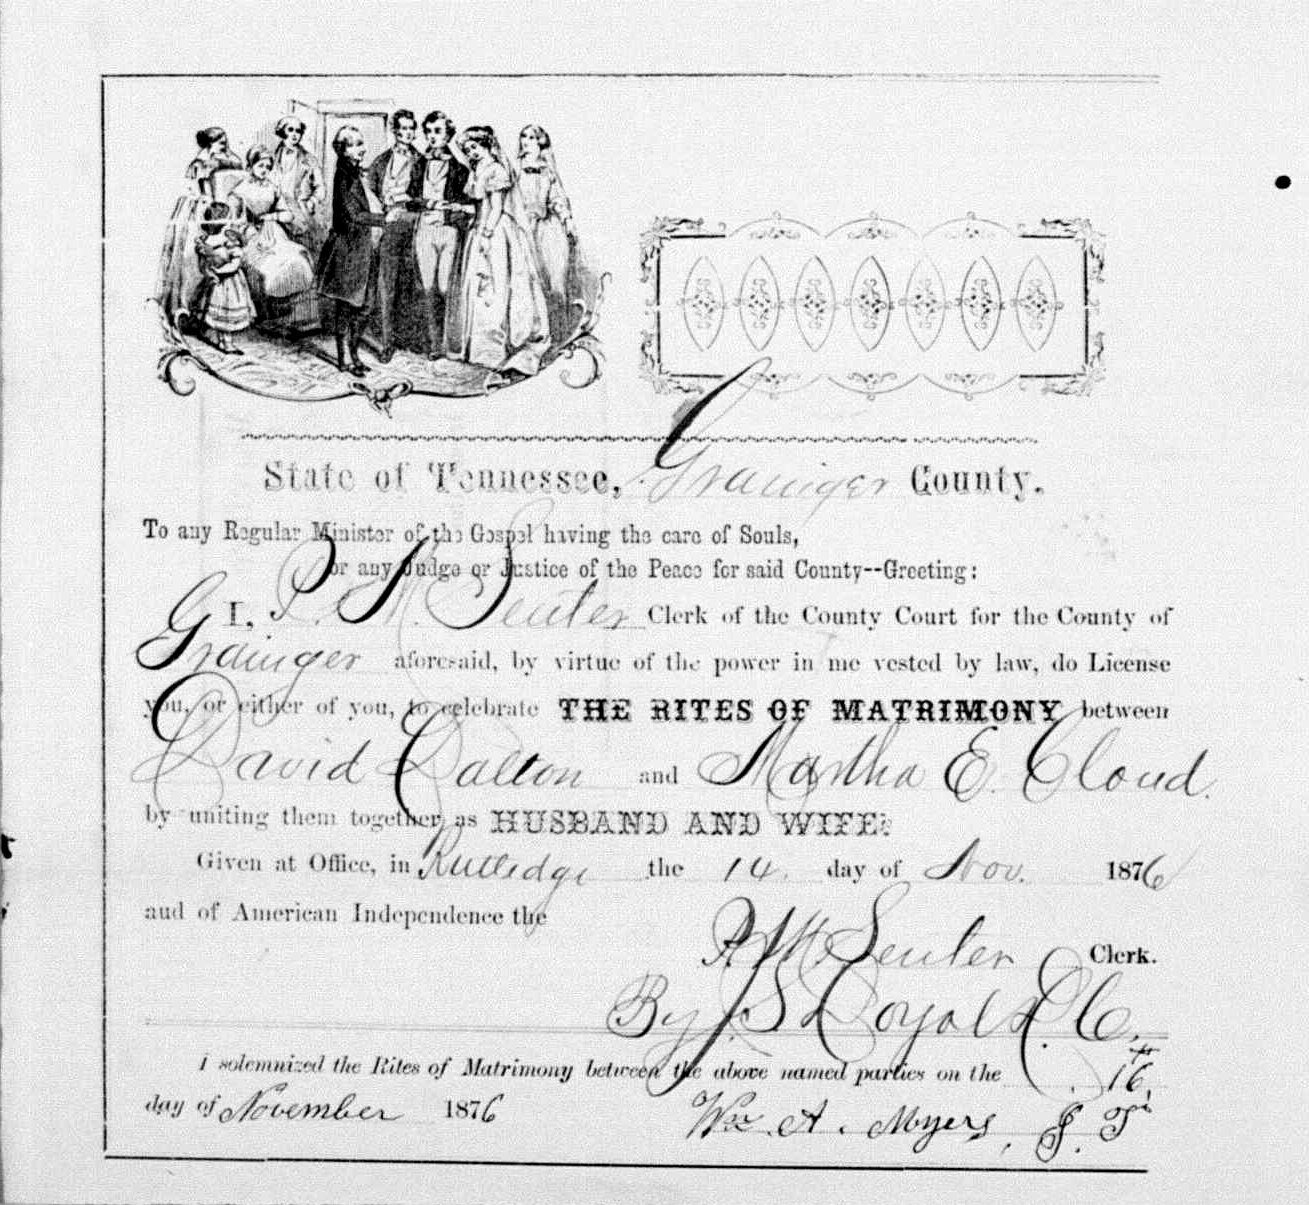 State of Tennessee, Grainger County.
To any Regular Minister of the Gospel having the care of Souls,
or any Judge or Justice of the Peace for said County--Greeting:
I, P. M. Senter Clerk of the County Court for the County of
Grainger aforesaid, by virtue of the power in me vested by law, do License
you, or either of you, to celebrate THE RITES OF MATRIMONY between
David Dalton and Martha E. Cloud.
by uniting them together as HUSBAND AND WIFE.
Given at Office, in Rutledge the 14. day of Nov. 1876
and of American Independence the
P. M. Senter Clerk.
By J. S. D. C.
I solemnized the Rites of Matrimony between the above named parties on the 16th
day of November 1876 Wm. A. Myers, J. P.